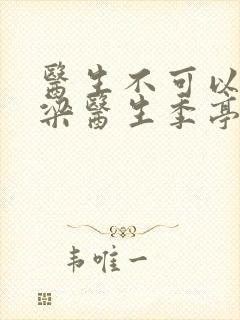 醫生不可以
梁醫生季亭
韦唯一